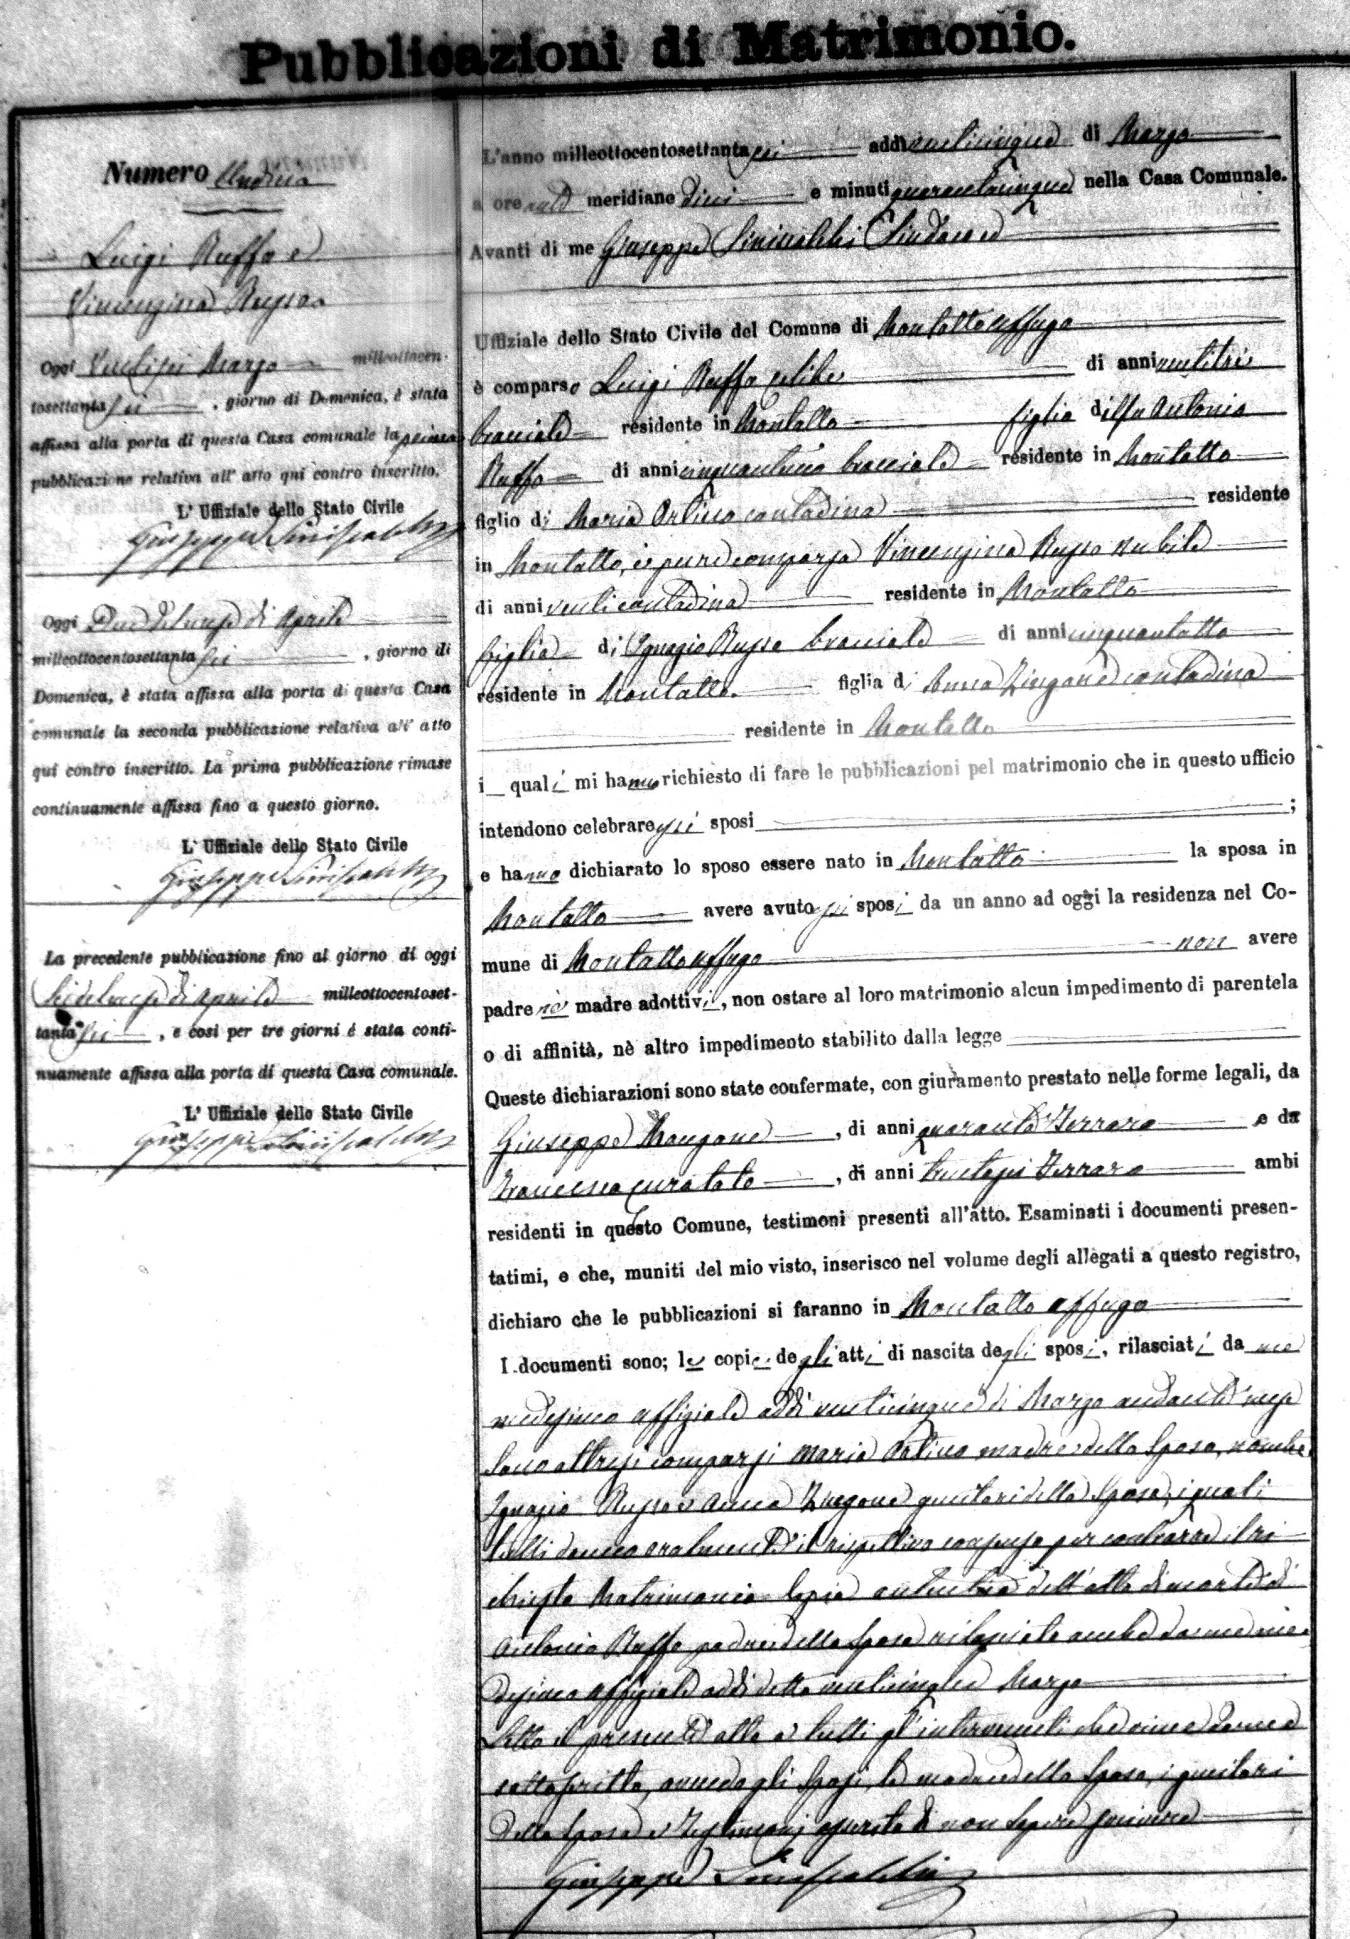 Pubblicazioni di Matrimonio.
Numero Undici
Luigi Ruffo e
Vincenzina Russo
Oggi Ventisei Marzo millottocen-
tosettanta sei, giorno di Domenica, è stata
affissa alla porta di questa Casa comunale la prima
pubblicazione relativa all' atto qui contro inscritto.
L' Uffiziale dello Stato Civile
Giuseppe Siniscalchi
Oggi Due del mese di Aprile
milleottocentosettanta sei, giorno di
Domenica, è stata affissa alla porta di questa Casa
comunale la seconda pubblicazione relativa all' atto
qui contro inscritto. La prima pubblicazione rimase
continuamente affissa fino a questo giorno.
L' Uffiziale dello Stato Civile
Giuseppe Siniscalchi
La precedente pubblicazione fino al giorno di oggi
Sei del mese di Aprile milleottocentoset-
tanta sei, e così per tre giorni é stata conti-
nuamente affissa alla porta di questa Casa comunale.
L' Uffiziale dello Stato Civile
Giuseppe Siniscalchi
L'anno milleottocentosettanta sei addì venticinque di Marzo
a ore anti meridiane dieci e minuti quarantacinque nella Casa Comunale.
Avanti di me Giuseppe Siniscalchi Sindaco
Uffiziale dello Stato Civile del Comune di Montalto uffugo
è comparso Luigi Ruffo celibe di anni ventitrè
bracciale residente in Montalto figlio di fu Antonio
Ruffo di anni bracciale residente in Montalto
figlio di Maria Orlino contadina residente
in Montalto, è pure comparsa Vincenzina Russo nubile
di anni venti contadina residente in Montalto
figlia di Ignazio Russo bracciale di anni cinquantotto
residente in Montalto figlia di Anna Zingone contadina
residente in Montalto
i quali mi hanno richiesto di fare le pubblicazioni pel matrimonio che in questo ufficio
intendono celebrare essi sposi ;
e hanno dichiarato lo sposo essere nato in Montalto la sposa in
Montalto avere avuto essi sposi da un anno ad oggi la residenza nel Co-
mune di Montalto uffugo non avere
padre nè madre adottivi, non ostare al loro matrimonio alcun impedimento di parentela
o di affinità, nè altro impedimento stabilito dalla legge
Queste dichiarazioni sono state confermate, con giuramento prestato nelle forme legali, da
Giuseppe Mangone, di anni quaranta Ferraro e da
Francesco Curatolo, di anni trentasei Ferraro ambi
residenti in questo Comune, testimoni presenti all'atto. Esaminati i documenti presen-
tatimi, e che, muniti del mio visto, inserisco nel volume degli allegati a questo registro,
dichiaro che le pubblicazioni si faranno in Montalto uffugo
I documenti sono; le copie degli atti di nascita degli sposi, rilasciati da me
medesimo uffiziale addì venticinque di Marzo andante mese
Sono altresì comparsi Maria Orlino madre dello Sposo, nonche
Ignazio Russo e Anna Zingone genitori della Sposa, i quali
tutti danno oralmente il rispettivo consenso per contrarre il ri-
chiesto Matrimonio Copia autentica dell'atto di morte di
Antonio Ruffo padre dello Sposo rilasciata anche da me me-
desimo uffiziale addì detto venticinque Marzo
Letto il presente atto a tutti gl'intervenuti
sottoscritto, avendo gli Sposi, la madre dello Sposo, i genitori
della Sposa e Testimoni asserito di non sapere scrivere
Giuseppe Siniscalchi